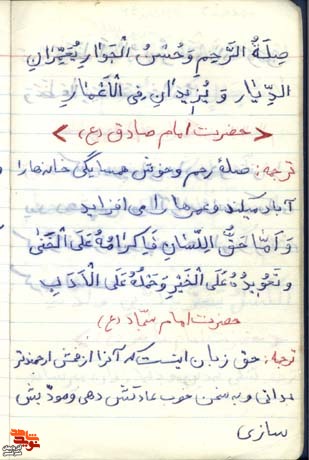 صِلَةُ الرَّحِمِ وَ حُسْنُ الْجَوارِ یُعَمِّرَانِ
الدِّیَارَ وَ یُزِیدَانِ فِی الْاَعْمَارِ
< حضرت امام صادق (ع) >
ترجمه: صلهٔ رحم و خوش همسایگی خانه ها را
آباد میکند و عمرها را می افزاید
وَ اَمّا حَقُّ اللِّسَانِ فَاِکرَامُهُ عَلَی الْخَنَی
وَ تَعْوِیدُهُ عَلَی الْخَیْرِ وَ حَمْلُهُ عَلَی الْاَدَبِ
حضرت امام سجّاد (ع)
ترجمه: حق زبان اینست که آنرا از فحش ارجمندتر
بدانی و به سخن خوب عادتش دهی و مودبش
سازی